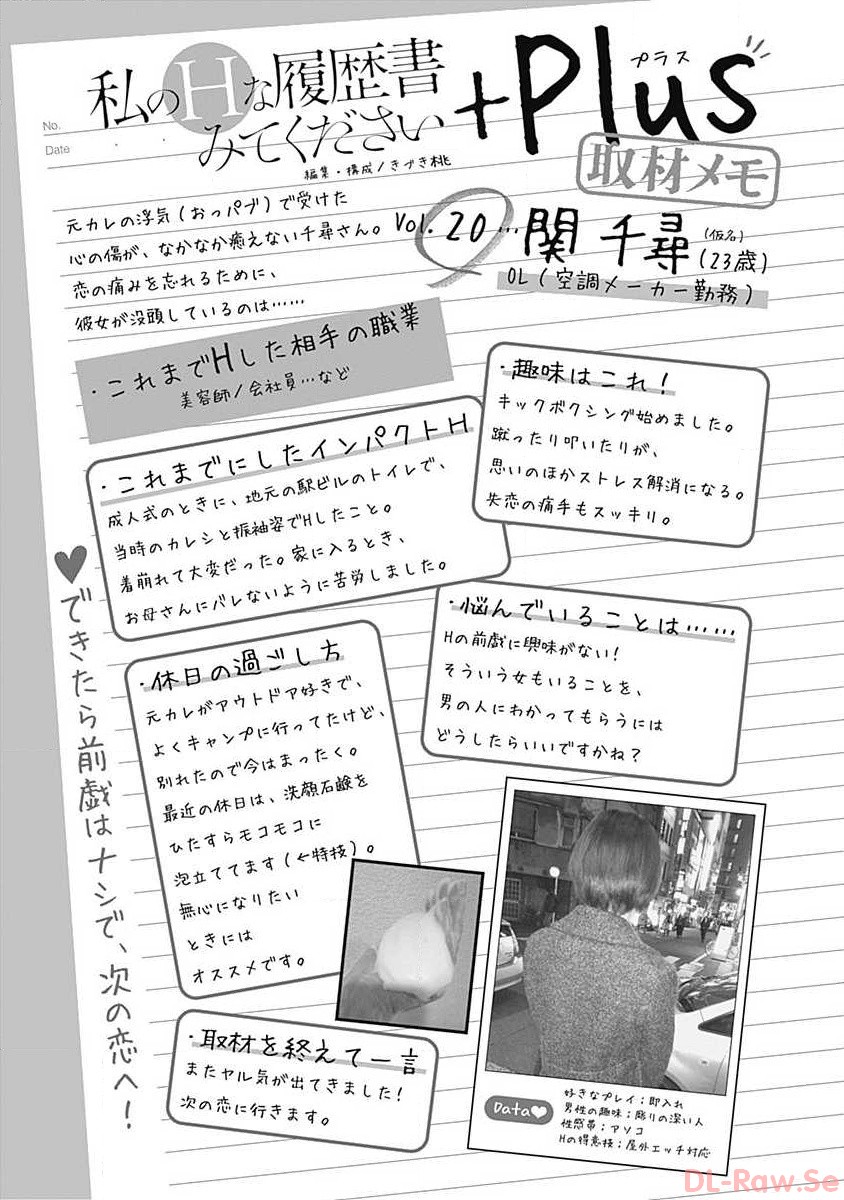 No.
Date
私のHな履歴書
みてください
+Plus
プラス
編集・構成/きづき桃
取材メモ
元カレの浮気(おっパブ)で受けた
心の傷が、なかなか癒えない千尋さん。
恋の痛みを忘れるために、
彼女が没頭しているのは……
Vol.20…関 千尋(仮名)(23歳)
OL(空調メーカー勤務)
・これまでHした相手の職業
美容師/会社員…など
・趣味はこれ!
キックボクシング始めました。
蹴ったり叩いたりが、
思いのほかストレス解消になる。
失恋の痛手もスッキリ。
・これまでにしたインパクトH
成人式のときに、地元の駅ビルのトイレで、
当時のカレシと振袖姿でHしたこと。
着崩れて大変だった。家に入るとき、
お母さんにバレないように苦労しました。
・悩んでいることは……
Hの前戯に興味がない!
そういう女もいることを、
男の人にわかってもらうには
どうしたらいいですかね?
・休日の過ごし方
元カレがアウトドア好きで、
よくキャンプに行ってたけど、
別れたので今はまったく。
最近の休日は、洗顔石鹸を
ひたすらモコモコに
泡立ててます(←特技)。
無心になりたい
ときには
オススメです。
♥できたら前戯はナシで、次の恋へ!
・取材を終えて一言
またヤル気が出てきました!
次の恋に行きます。
Data♥
好きなプレイ;即入れ
男性の趣味;彫りの深い人
性感帯;アソコ
Hの得意技;屋外エッチ対応
DL-Raw.Se